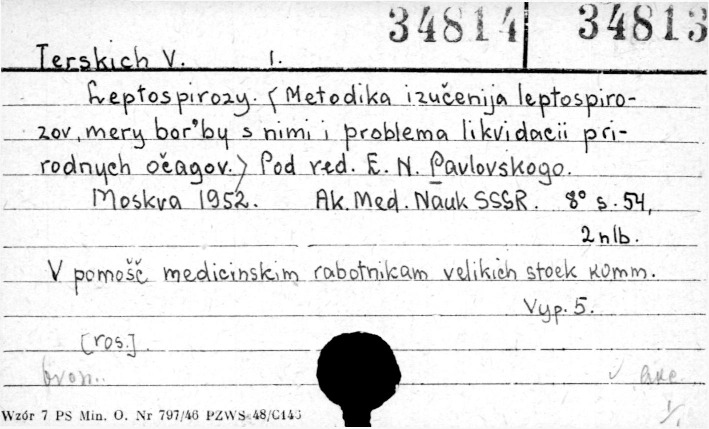 34814 34813
Terskich V. I.
Leptospirozy. (Metodika izučenija leptospiro-
zov, mery bor'by s nimi i problema likvidacii pri-
rodnych očagov.) Pod red. E. N. Pavlovskogo.
Moskva 1952. Ak. Med. Nauk SSSR. 8° s. 54,
2 nlb.
V pomošč medicinskim rabotnikam velikich stoek komm.
Vyp. 5.
[ros.]
brosz.
Wzór 7 PS Min. O. Nr 797/46 PZWS 48/C146